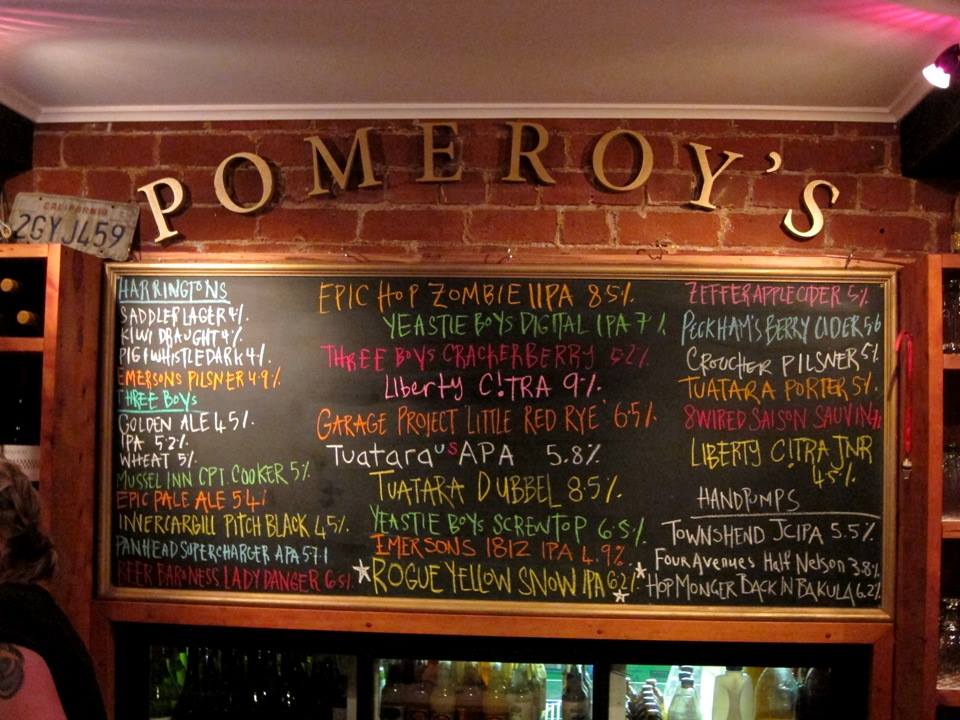 POMEROY'S
CALIFORNIA
2GYJ459
HARRINGTONS
SADDLER LAGER 4%
KIWI DRAUGHT 4%
PIG & WHISTLE DARK 4%
EMERSONS PILSNER 4.9%
THREE BOYS
GOLDEN ALE 4.5%
IPA 5.2%
WHEAT 5%
MUSSEL INN CPT. COOKER 5%
EPIC PALE ALE 5.4%
INVERCARGILL PITCH BLACK 4.5%
PANHEAD SUPERCHARGER APA 5.7%
BEER BARONESS LADY DANGER 6.5%
EPIC HOP ZOMBIE IIPA 8.5%
YEASTIE BOYS DIGITAL IPA 7%
THREE BOYS CRACKERBERRY 5.2%
LIBERTY C!TRA 9%
GARAGE PROJECT 'LITTLE RED RYE' 6.5%
Tuatara US APA 5.8%
TUATARA DUBBEL 8.5%
YEASTIE BOYS SCREWTOP 6.5%
EMERSONS 1812 IPA 4.9%
ROGUE YELLOW SNOW IPA 6.2%
ZEFFER APPLE CIDER 5%
PECKHAM'S BERRY CIDER 5.6
CROUCHER PILSNER 5%
TUATARA PORTER 5%
8 WIRED SAISON SAUVIN
LIBERTY C!TRA JNR
4.5%
HANDPUMPS
TOWNSHEND JCIPA 5.5%
Four Avenues Half Nelson 3.8%
HOP MONGER BACK IN BAKULA 6.2%